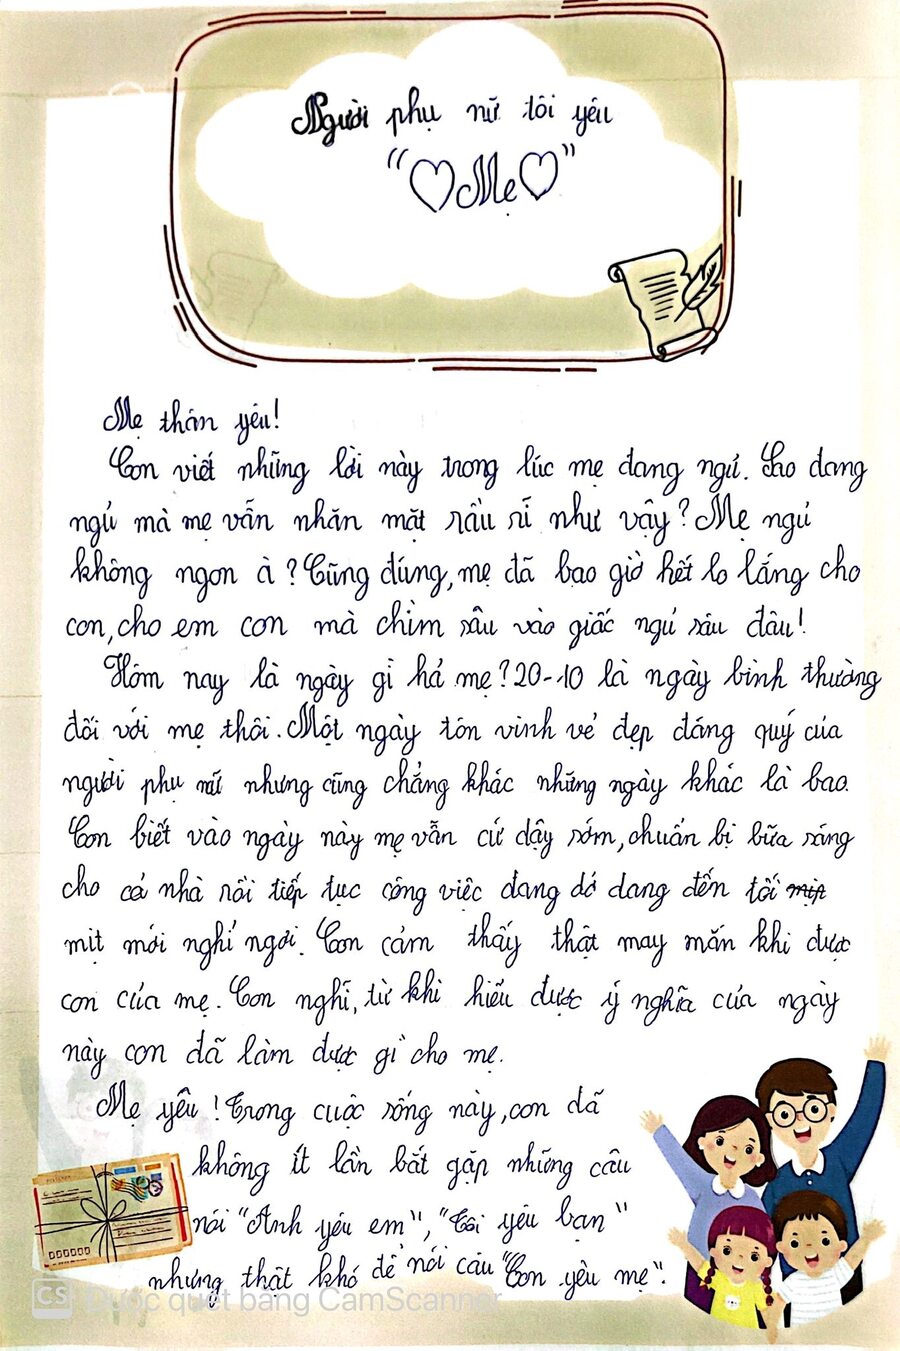 Người phụ nữ tôi yêu
"♡Mẹ♡"
Mẹ thân yêu!
Con viết những lời này trong lúc mẹ đang ngủ. Sao đang
ngủ mà mẹ vẫn nhăn mặt rầu rĩ như vậy? Mẹ ngủ
không ngon à? Cũng đúng, mẹ đã bao giờ hết lo lắng cho
con, cho em con mà chìm sâu vào giấc ngủ sâu đâu!
Hôm nay là ngày gì hả mẹ? 20-10 là ngày bình thường
đối với mẹ thôi. Một ngày tôn vinh vẻ đẹp đáng quý của
người phụ nữ nhưng cũng chẳng khác những ngày khác là bao.
Con biết vào ngày này mẹ vẫn cứ dậy sớm, chuẩn bị bữa sáng
cho cả nhà rồi tiếp tục công việc đang dở dang đến tối mịp
mịt mới nghỉ ngơi. Con cảm thấy thật may mắn khi được
con của mẹ. Con nghĩ, từ khi hiểu được ý nghĩa của ngày
này con đã làm được gì cho mẹ.
Mẹ yêu! Trong cuộc sống này, con đã
không ít lần bắt gặp những câu
nói "Anh yêu em", "Tôi yêu bạn"
nhưng thật khó để nói câu "Con yêu mẹ".
CS Được quét bằng CamScanner